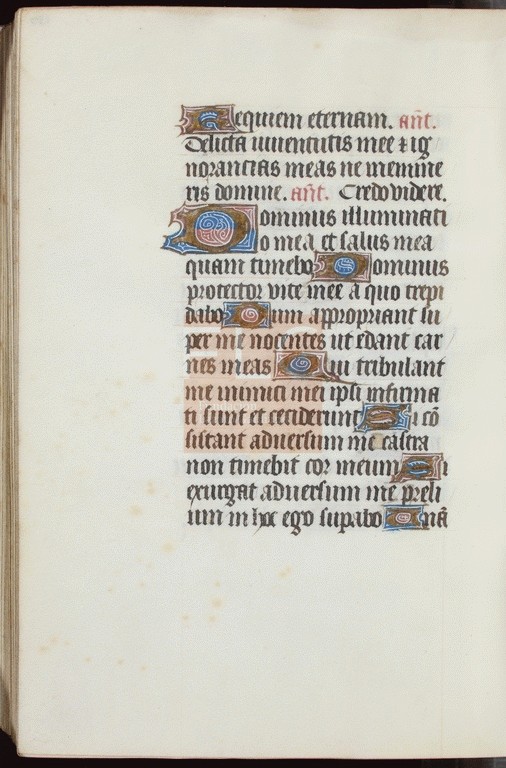 Requiem eternam. añt.
Delicta iuuentutis mee ⁊ ig
norancias meas ne memine
ris domine. añt. Credo videre.
Dominus illuminati
o mea et salus mea
quam timebo Dominus
protector vite mee a quo trepi
dabo Dum appropriant su
per me nocentes ut edant car
nes meas Qui tribulant
me inimici mei ipsi infirma
ti sunt et ceciderunt Si cō
sistant aduersum me castra
non timebit cor meum Si
exurgat aduersum me preli
um in hoc ego supabo Unā